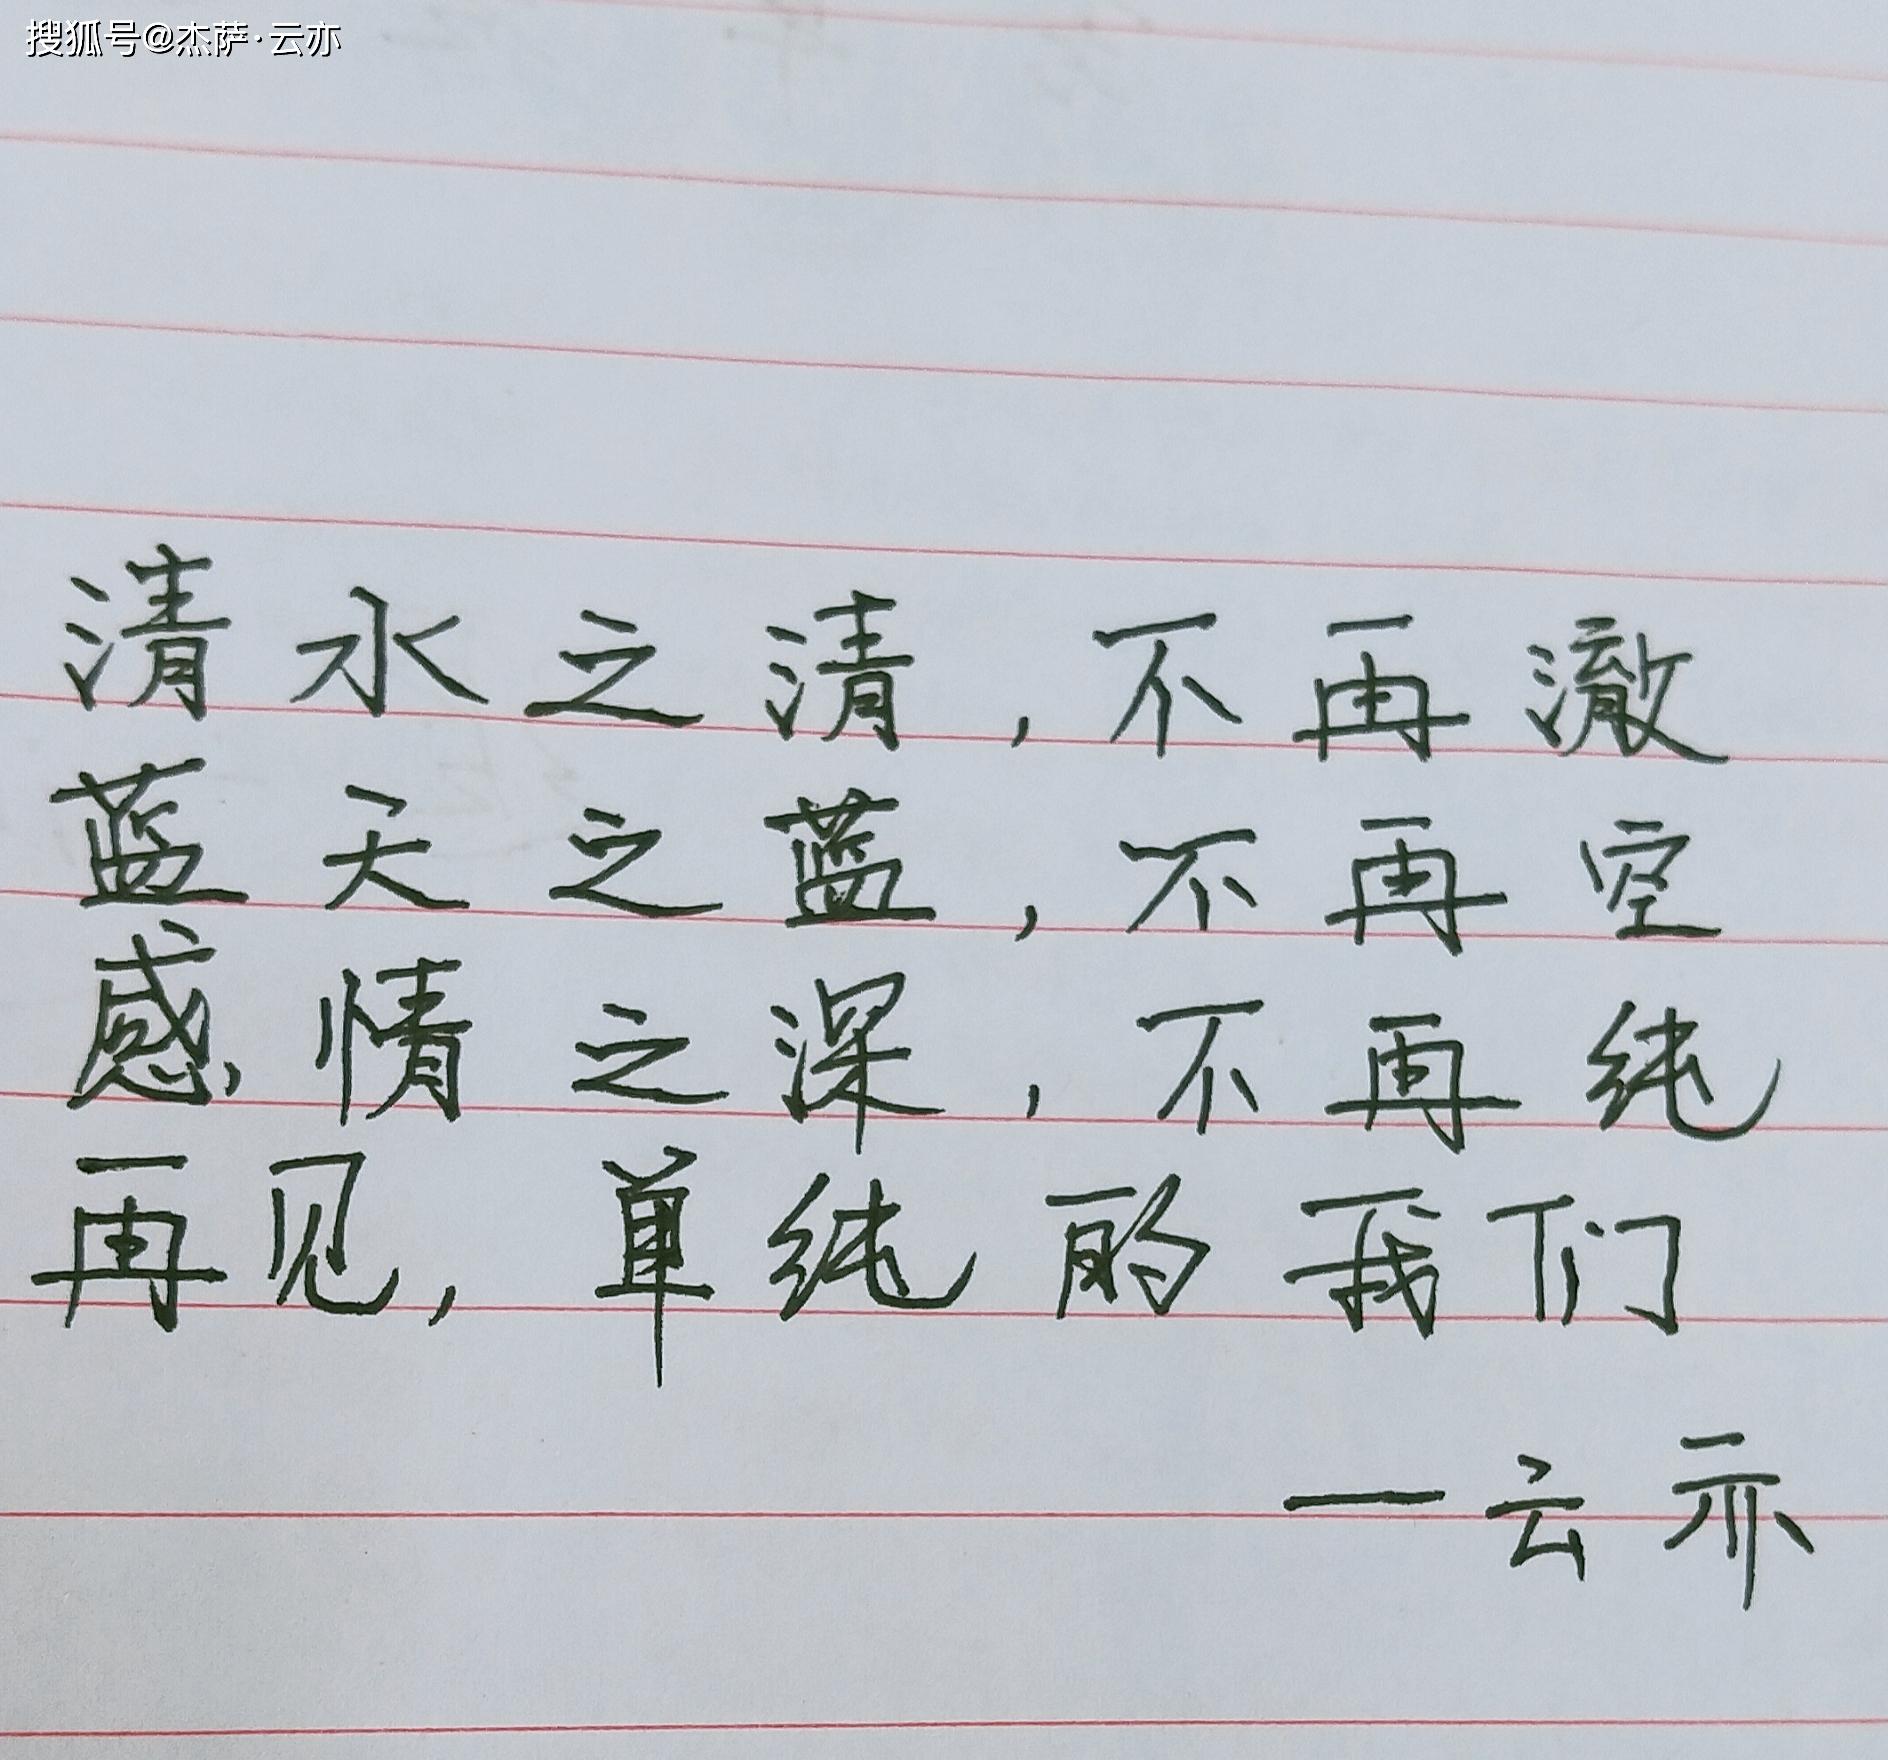 搜狐号@杰萨·云亦
清水之清,不再澈
蓝天之蓝,不再空
感情之深,不再纯
再见,单纯的我们
一云亦